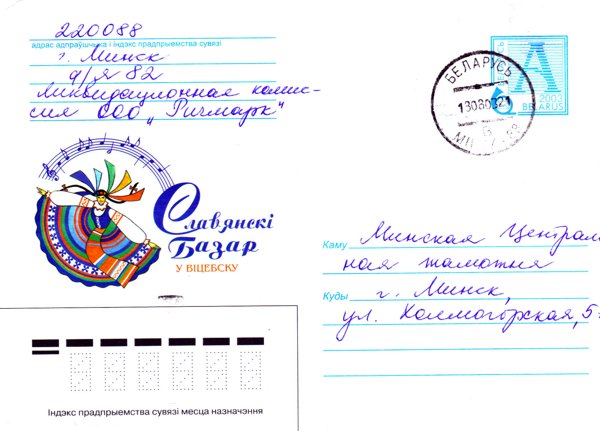 220088
адрас адпраўшчыка і індэкс прадпрыемства сувязі
г. Минск
а/я 82
Ликвидационная комис-
сия ООО "Ричмарк"
БЕЛАРУСЬ
130803 21
Б
A
2003
BELARUS
Славянскі
Базар
У ВІЦЕБСКУ
Каму Минская Централь
ная таможня
Куды г. Минск,
ул. Холмогорская, 5
Індэкс прадпрыемства сувязі месца назначэння